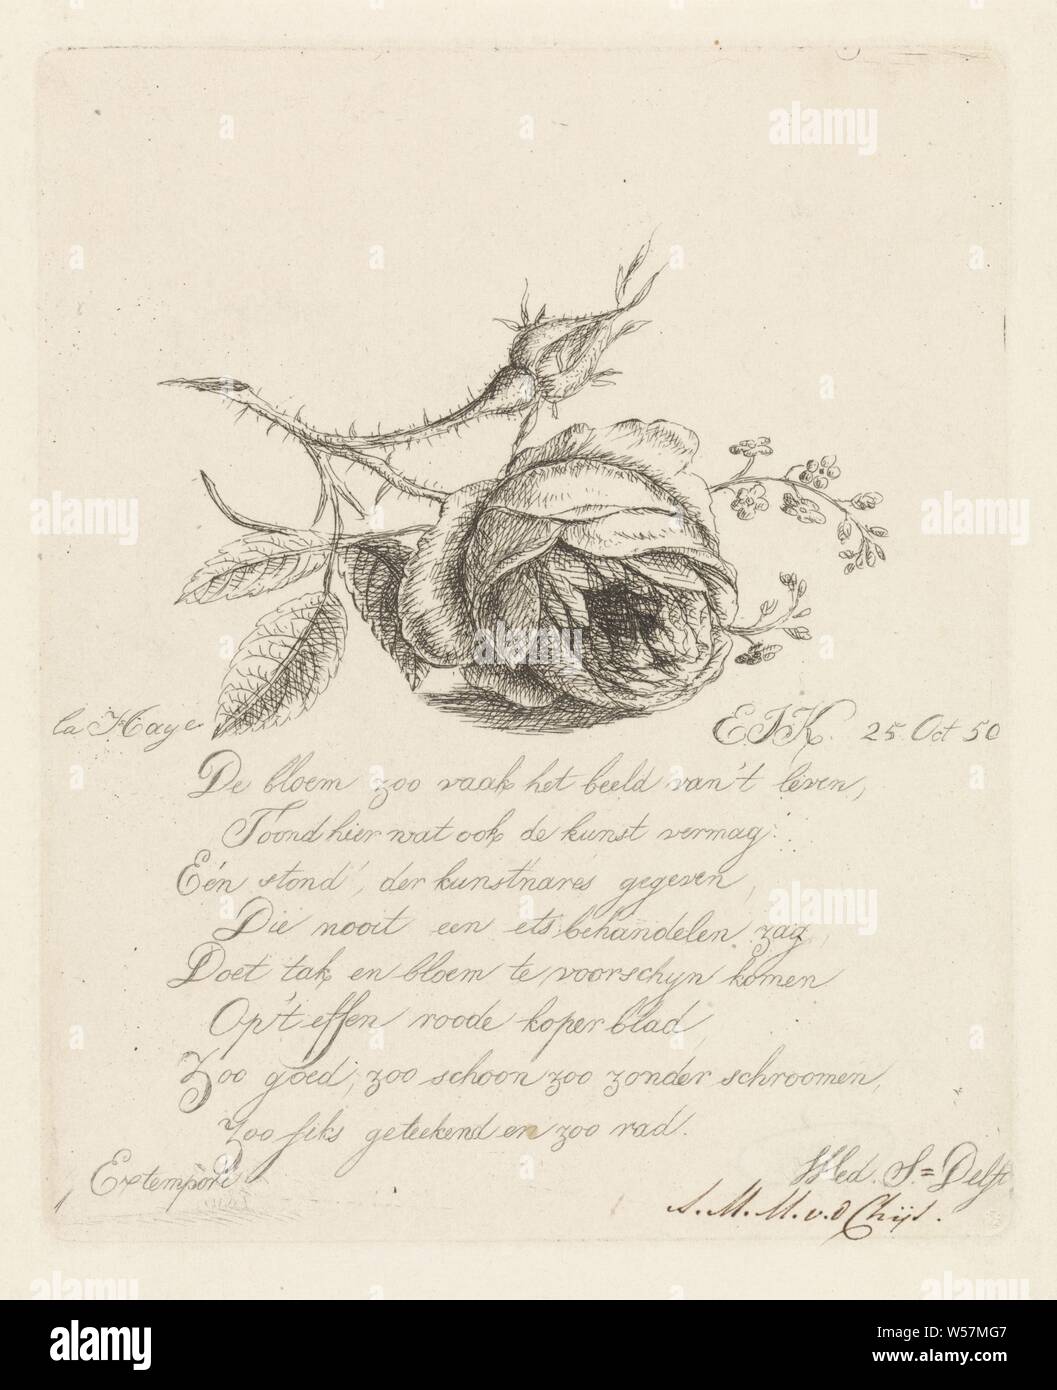 la Haye
EJK. 25 Oct 50
De bloem zoo vaak het beeld van't leven,
Toond hier wat ook de kunst vermag:
Eén stond', der kunst'nares gegeven,
Die nooit een ets behandelen zag,
Doet tak en bloem te voorschyn komen
Op't effen roode koperblad,
Zoo goed, zoo schoon zoo zonder schroomen,
Zoo fiks geteekend en zoo rad.
Extemporé
Wed. S.= Delft
A. M. M. v. d Chijs.
alamy
Image ID: W57MG7
www.alamy.com